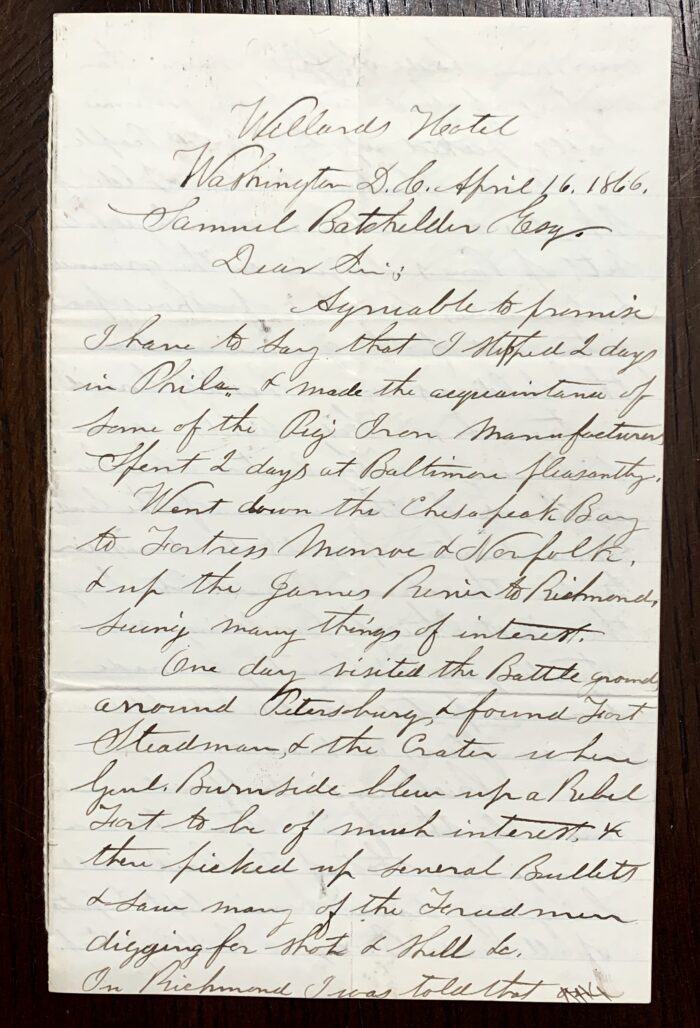 Willards Hotel
Washington D.C. April 16. 1866.
Samuel Batchelder Esq.
Dear Sir;
Agreeable to promise
I have to say that I stopped 2 days
in Phila. & made the acquaintance of
some of the Pig Iron Manufacturers
Spent 2 days at Baltimore pleasantly.
Went down the Chesapeak Bay
to Fortress Monroe & Norfolk,
& up the James River to Richmond,
seeing many things of interest.
One day visited the Battle grounds
arround Petersburg, & found Fort
Steadman, & the Crater where
Genl. Burnside blew up a Rebel
Fort to be of much interest, &
there picked up several Bullets
& saw many of the Freedmen
digging for shot & shell &c.
In Richmond I was told that